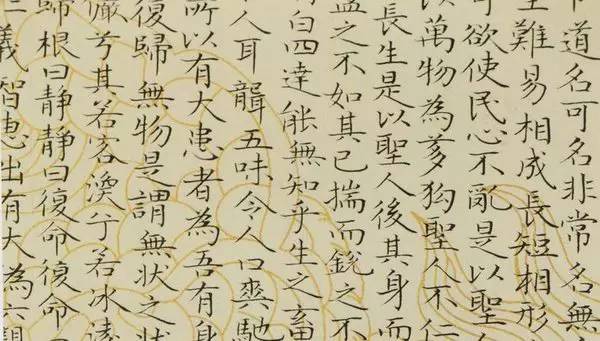 道名可名非常名無
難易相成長短相形
可欲使民心不亂是以聖
以萬物為芻狗聖人不仁
長生是以聖人後其身而
盈之不如其已揣而銳之不
白四達能無知乎生之畜
人耳聾五味令人口爽馳
所以有大患者為吾有身
復歸無物是謂無状之状
儼兮其若客渙兮若冰凌
歸根曰靜靜曰復命復命
義智惠出有大為六親